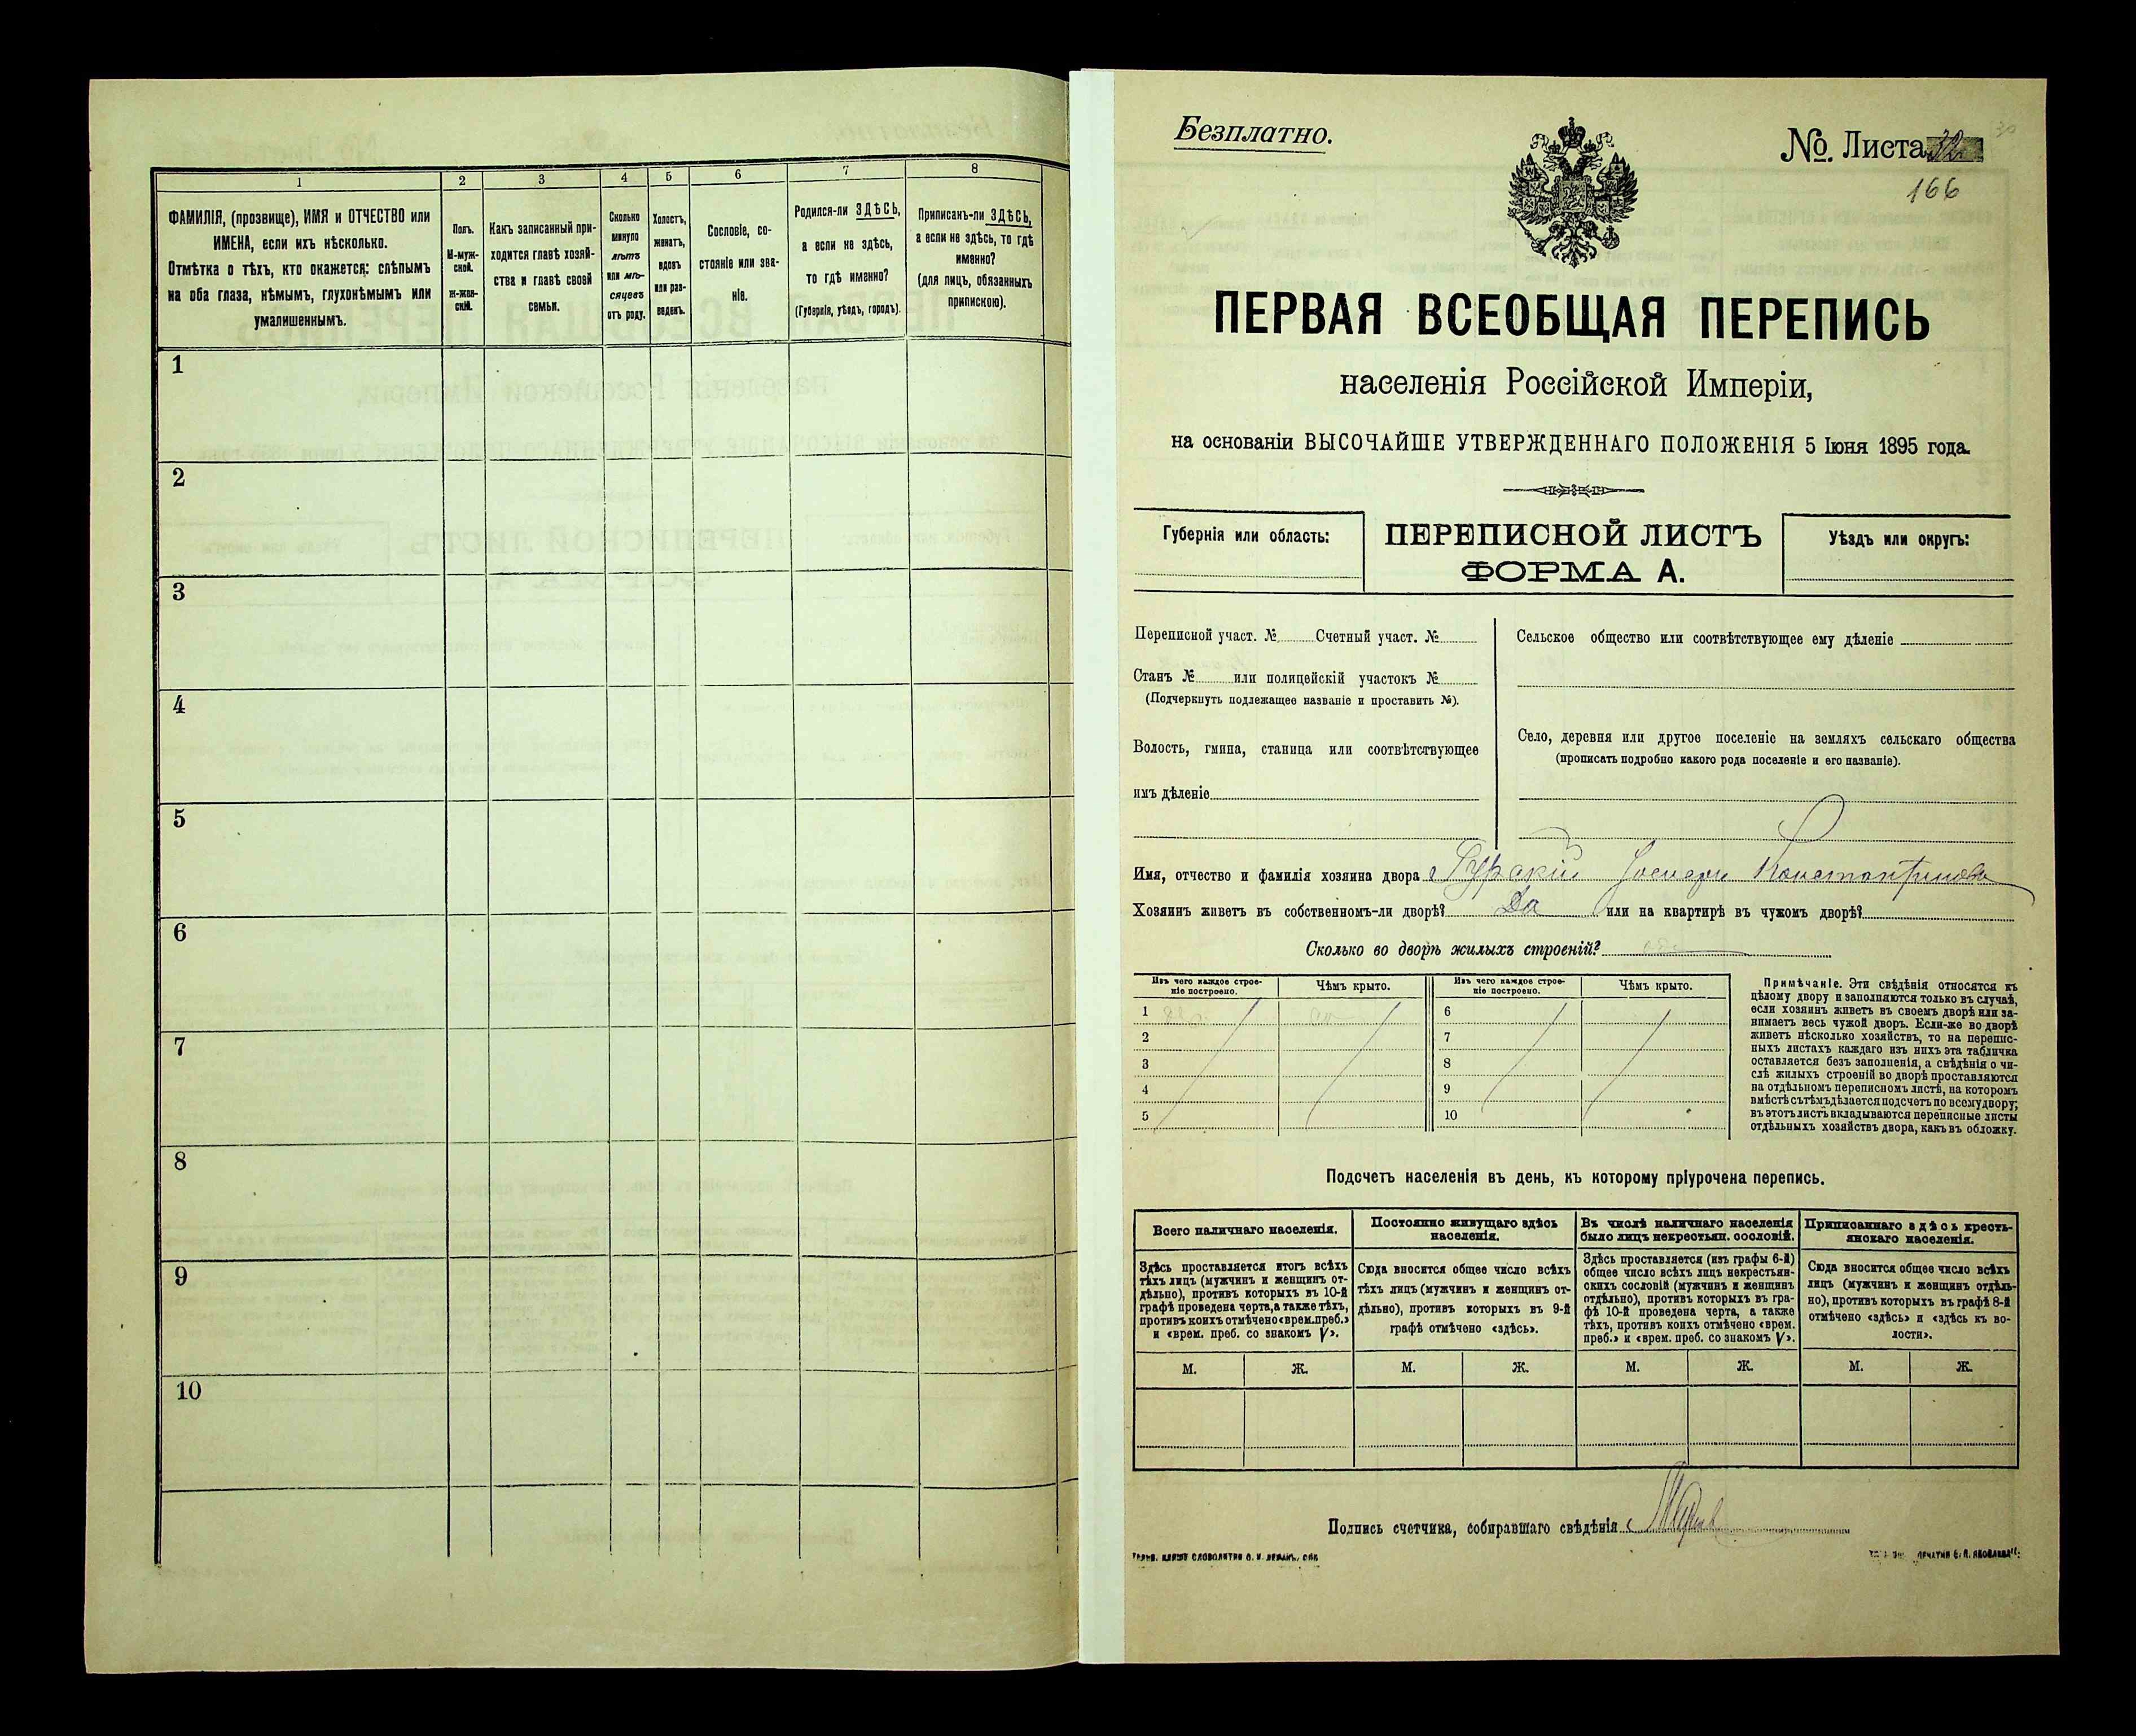 1
2
3
4
5
6
7
8
ФАМИЛІЯ, (прозвище), ИМЯ и ОТЧЕСТВО или
ИМЕНА, если ихъ нѣсколько.
Отмѣтка о тѣхъ, кто окажется: слѣпымъ
на оба глаза, нѣмымъ, глухонѣмымъ или
умалишеннымъ.
Полъ.
М-муж-
ской.
Ж-жен-
скій.
Какъ записанный при-
ходится главѣ хозяй-
ства и главѣ своей
семьи.
Сколько
минуло
лѣтъ
или мѣ-
сяцевъ
отъ роду.
Холостъ,
женатъ,
вдовъ
или раз-
веденъ.
Сословіе, со-
стояніе или зва-
ніе.
Родился-ли ЗДѢСЬ,
а если не здѣсь,
то гдѣ именно?
(Губернія, уѣздъ, городъ).
Приписанъ-ли ЗДѢСЬ,
а если не здѣсь, то гдѣ
именно?
(для лицъ, обязанныхъ
припискою).
1
2
3
4
5
6
7
8
9
10
Безплатно.
№. Листа 32
166
ПЕРВАЯ ВСЕОБЩАЯ ПЕРЕПИСЬ
населенія Россійской Имперіи,
на основаніи ВЫСОЧАЙШЕ УТВЕРЖДЕННАГО ПОЛОЖЕНІЯ 5 Іюня 1895 года.
Губернія или область:
ПЕРЕПИСНОЙ ЛИСТЪ
ФОРМА А.
Уѣздъ или округъ:
Переписной участ. № Счетный участ. №
Станъ № или полицейскій участокъ №
(Подчеркнуть подлежащее названіе и проставить №).
Волость, гмина, станица или соотвѣтствующее
имъ дѣленіе
Сельское общество или соотвѣтствующее ему дѣленіе
Село, деревня или другое поселеніе на земляхъ сельскаго общества
(прописать подробно какого рода поселеніе и его названіе).
Имя, отчество и фамилія хозяина двора Гурскій Константиновъ
Хозяинъ живетъ въ собственномъ-ли дворѣ? Да или на квартирѣ въ чужомъ дворѣ?
Сколько во дворѣ жилыхъ строеній?
Изъ чего каждое строе-
ніе построено.
Чѣмъ крыто.
Изъ чего каждое строе-
ніе построено.
Чѣмъ крыто.
1
2
3
4
5
6
7
8
9
10
Примѣчаніе. Эти свѣдѣнія относятся къ
цѣлому двору и заполняются только въ случаѣ,
если хозяинъ живетъ въ своемъ дворѣ или за-
нимаетъ весь чужой дворъ. Если-же во дворѣ
живетъ нѣсколько хозяйствъ, то на перепис-
ныхъ листахъ каждаго изъ нихъ эта табличка
оставляется безъ заполненія, а свѣдѣнія о чи-
слѣ жилыхъ строеній во дворѣ проставляются
на отдѣльномъ переписномъ листѣ, на которомъ
вмѣстѣ съ тѣмъ дѣлается подсчетъ по всему двору;
въ этотъ листъ вкладываются переписные листы
отдѣльныхъ хозяйствъ двора, какъ въ обложку.
Подсчетъ населенія въ день, къ которому пріурочена перепись.
Всего наличнаго населенія.
Здѣсь проставляется итогъ всѣхъ
тѣхъ лицъ (мужчинъ и женщинъ от-
дѣльно), противъ которыхъ въ 10-й
графѣ проведена черта, а также тѣхъ,
противъ коихъ отмѣчено «врем. преб.»
и «врем. преб. со знакомъ V».
Постоянно живущаго здѣсь
населенія.
Сюда вносится общее число всѣхъ
тѣхъ лицъ (мужчинъ и женщинъ от-
дѣльно), противъ которыхъ въ 9-й
графѣ отмѣчено «здѣсь».
Въ числѣ наличнаго населенія
было лицъ некрестьян. сословій.
Здѣсь проставляется (изъ графы 6-й)
общее число всѣхъ лицъ некрестьян-
скихъ сословій (мужчинъ и женщинъ
отдѣльно), противъ которыхъ въ гра-
фѣ 10-й проведена черта, а также
тѣхъ, противъ коихъ отмѣчено «врем.
преб.» и «врем. преб. со знакомъ V».
Приписаннаго здѣсь кресть-
янскаго населенія.
Сюда вносится общее число всѣхъ
лицъ (мужчинъ и женщинъ отдѣль-
но), противъ которыхъ въ графѣ 8-й
отмѣчено «здѣсь» и «здѣсь къ во-
лости».
М.
Ж.
М.
Ж.
М.
Ж.
М.
Ж.
Подпись счетчика, собиравшаго свѣдѣнія